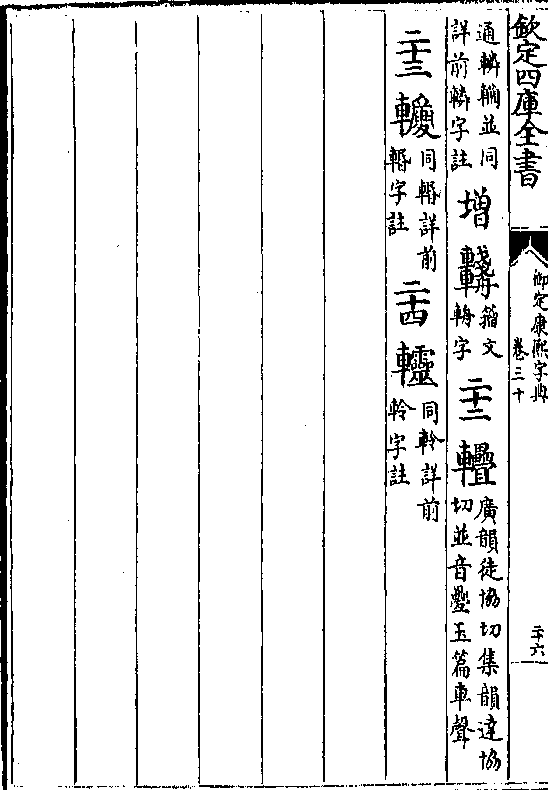 欽定四庫全書
御定康熙字典
卷三十
二十六
通轔並同
詳前轔字註
增
籀文
輈字
二十二
廣韻徒協切集韻達協
切並音疊玉篇車聲
二十三
同詳前
字註
二十四
同軨詳前
軨字註